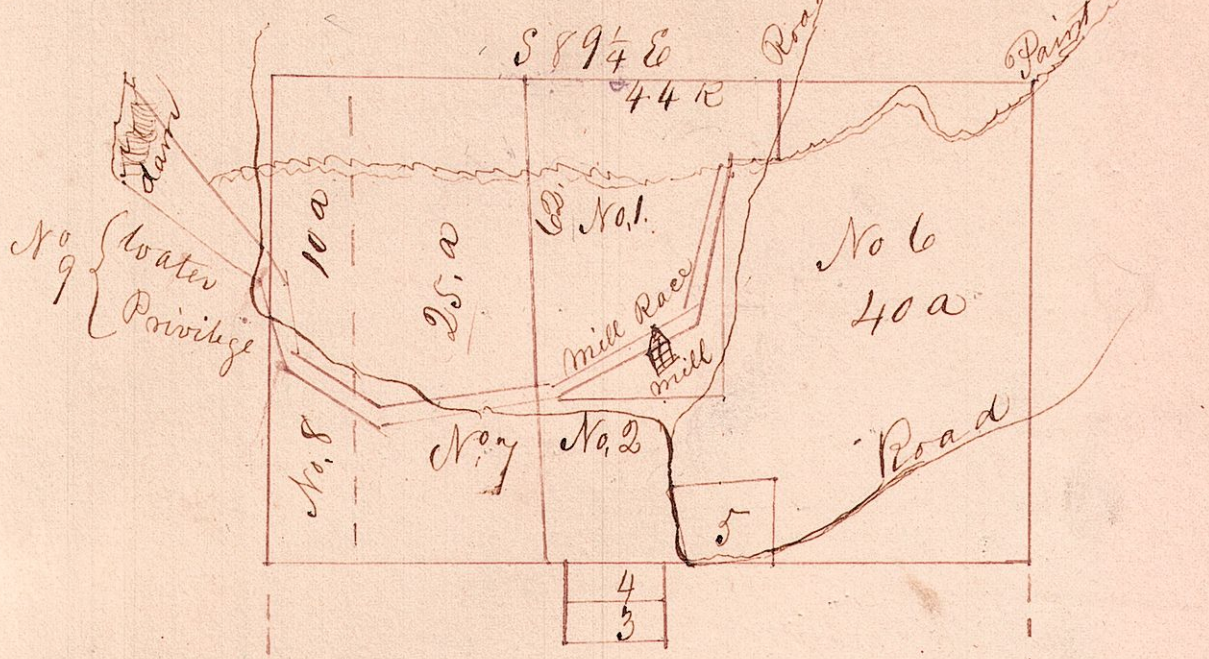 S 89¼ E
44 R
Road
Paint
dam
No 9 { Water
Privilege
10 a
25, a
No, 1.
Mill Race
Mill
No 6
40 a
No, 8
No, 7
No, 2
Road
5
4
3